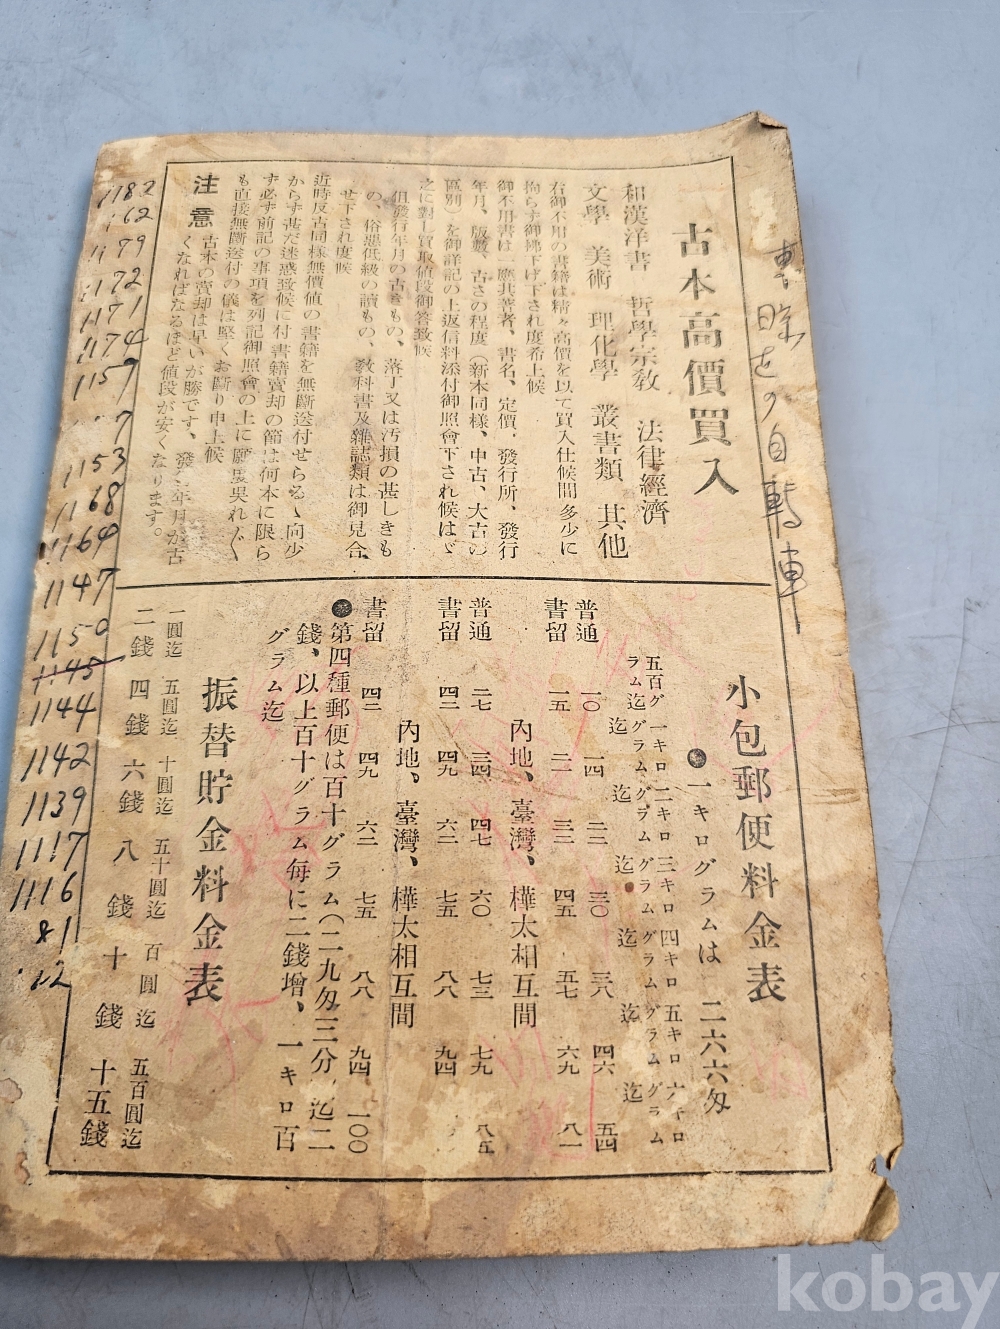 古本高價買入
和漢洋書 哲學宗敎 法律經濟
文學 美術 理化學 叢書類 其他
右御不用の書籍は精々高價を以て買入仕候間多少に
拘らず御拂下げ下され度希上候
御不用書は一應共著者、書名、定價、發行所、發行
年月、版數、古さの程度(新本同樣、中古、大古の
區別)を御詳記の上返信料添付御照會下され候はゞ
之に對し買取値段御答致候
但發行年月の古きもの、落丁又は汚損の甚しきも
の、俗惡低級の讀もの、敎科書及雜誌類は御見合
せ下され度候
近時反古同樣無價値の書籍を無斷送付せらるゝ向少
からず甚だ迷惑致候に付書籍賣却の節は何本に限ら
ず必ず前記の事項を列記御照會の上に願
も直接無斷送付の儀は堅くお斷り申上候
注意 古本の賣却は早いが勝です、發行年月が古
くなればなるほど値段が安くなります。
小包郵便料金表
●一キログラムは 二六六匁
五百グラム迄 一キログラム迄 二キログラム迄 三キログラム迄 四キログラム迄 五キログラム迄 六キログラム迄
普通 一〇 一四 二二 三〇 三八 四六 五四
書留 一五 二一 三二 四五 五七 六九 八一
內地、臺灣、樺太相互間
普通 二七 三四 四七 六〇 七三 七九 八五
書留 四二 四九 六二 七五 八八 九四
內地、臺灣、樺太相互間
書留 四二 四九 六二 七五 八八 九四 一〇〇
●第四種郵便は百十グラム(二九匁三分)迄二
錢、以上百十グラム每に二錢增、一キロ百
グラム迄
振替貯金料金表
一圓迄 五圓迄 十圓迄 五十圓迄 百圓迄 五百圓迄
二錢 四錢 六錢 八錢 十錢 十五錢
自轉車
1182
1162
1179
1172
1171
1174
1157
1153
1168
1164
1147
1150
1145
1144
1142
1139
1117
1116
81
12
kobay